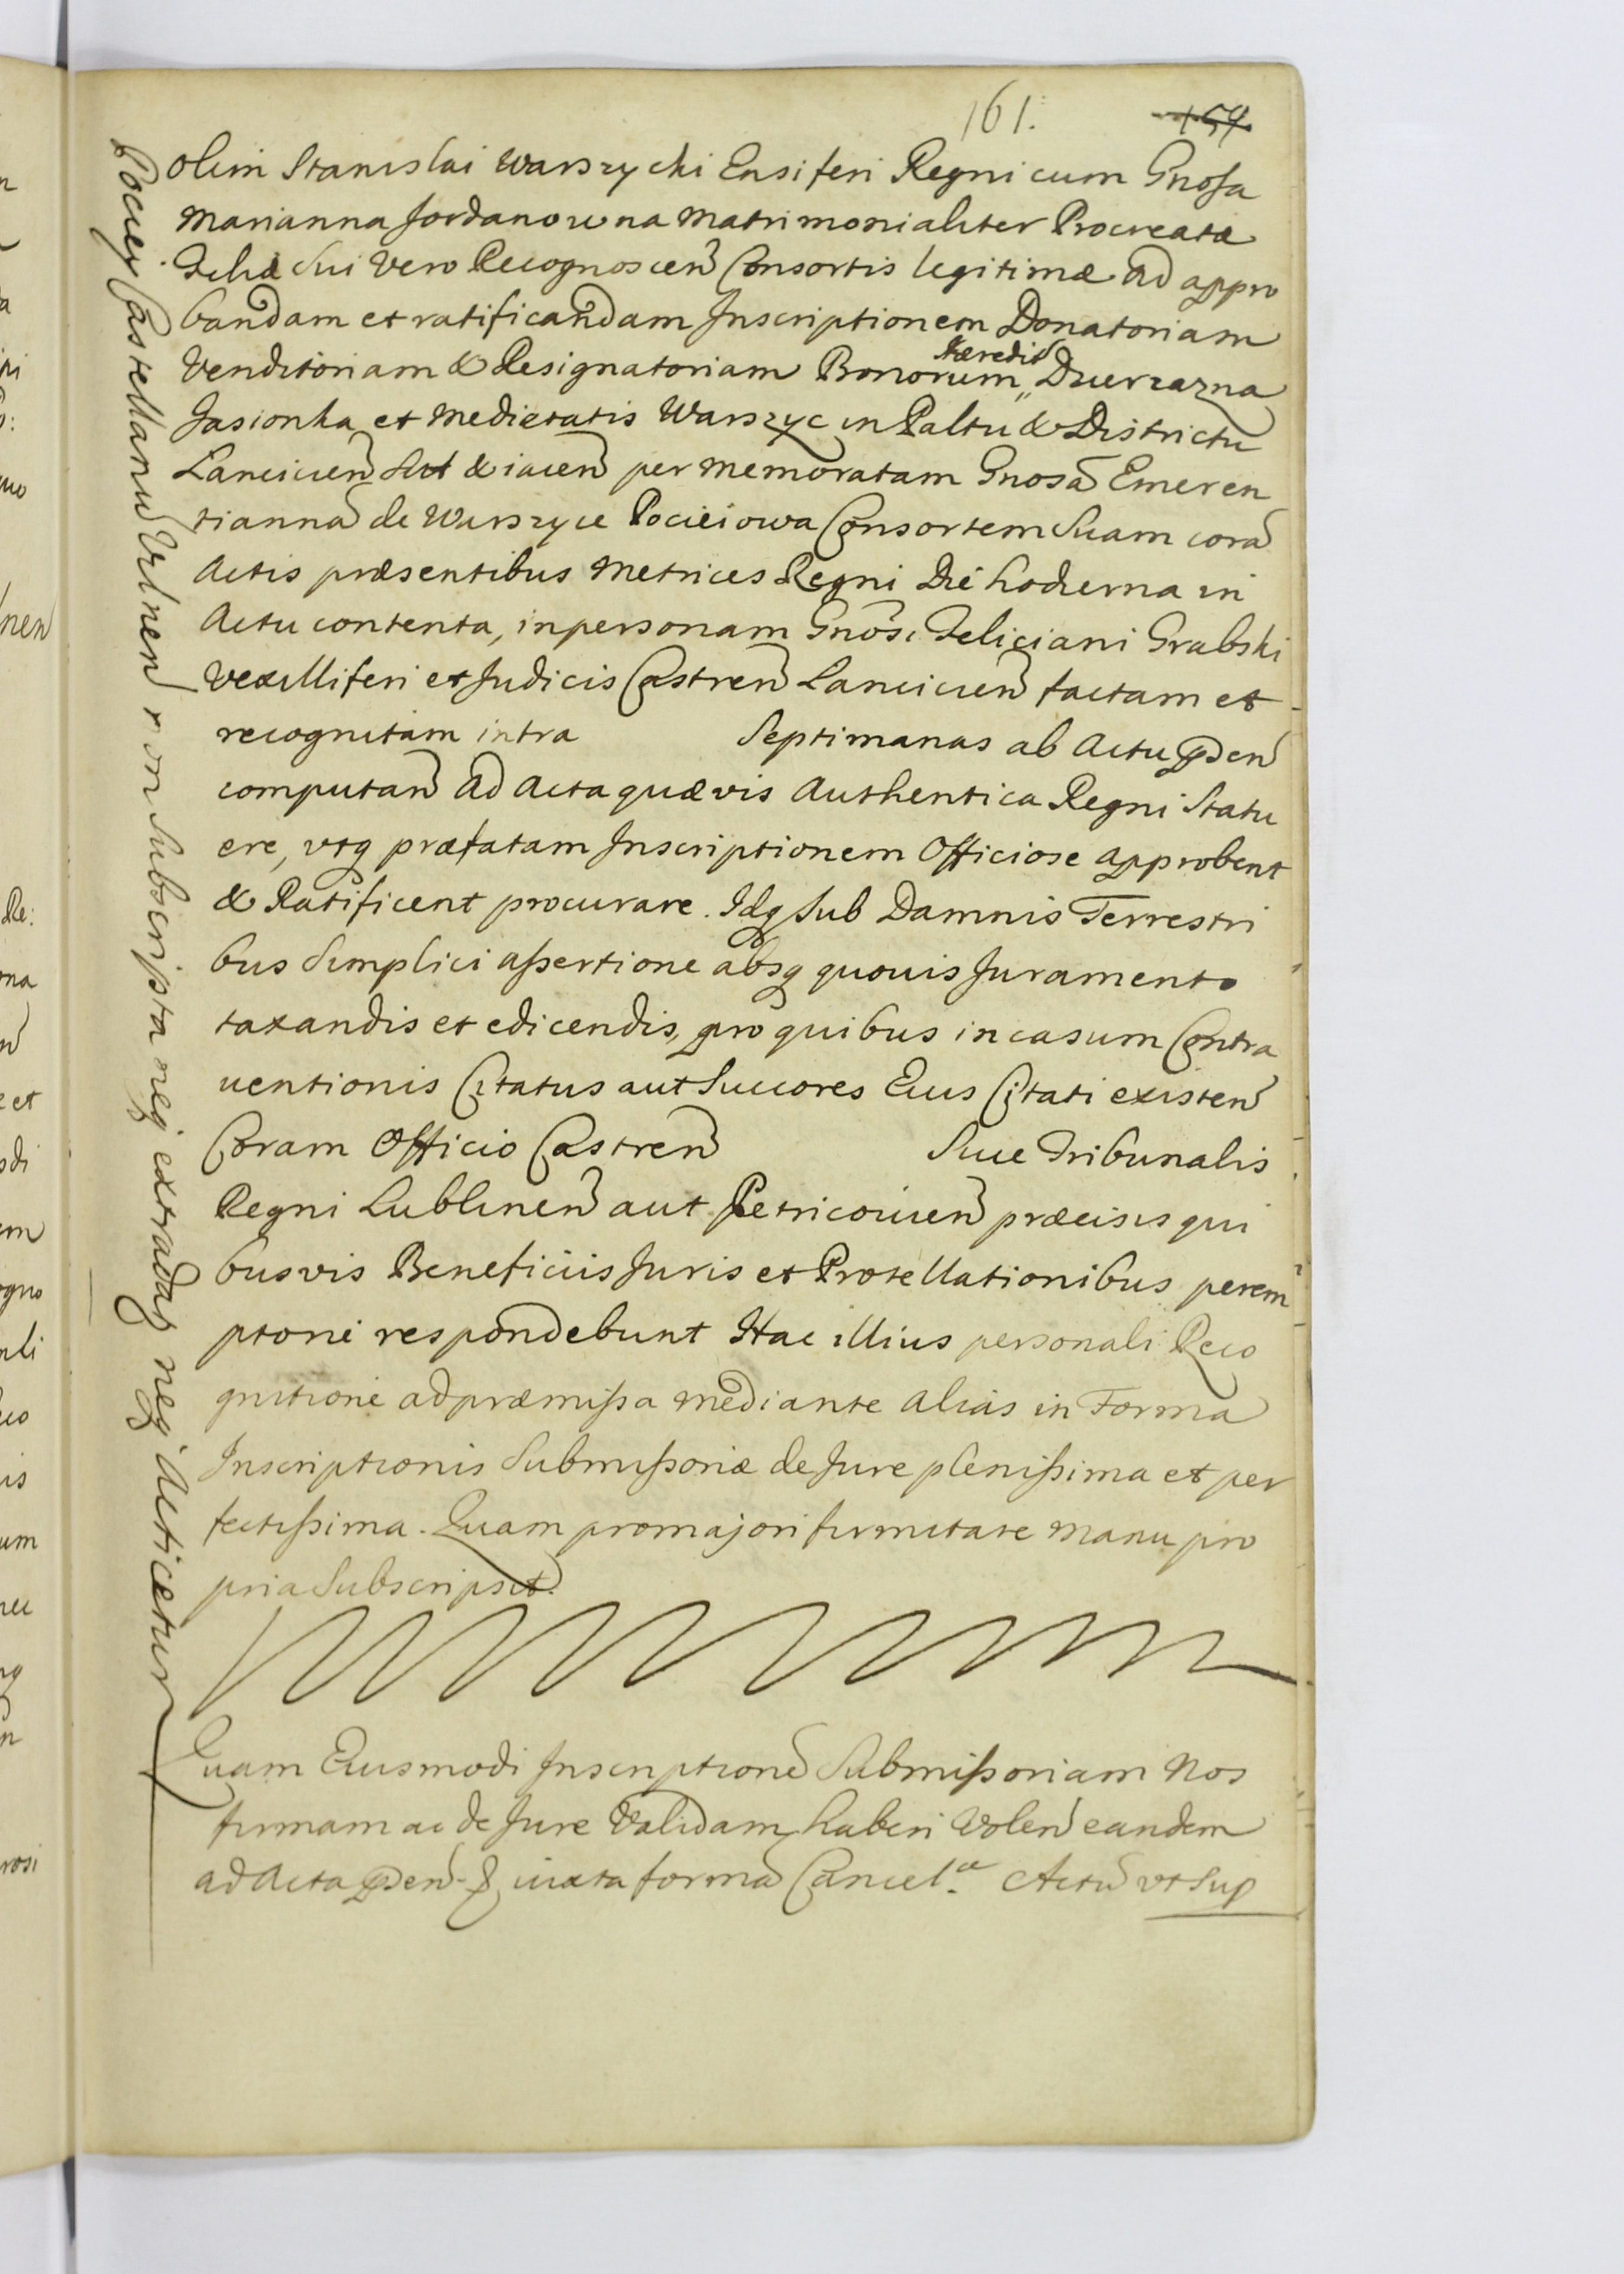 161.
159.
olim Stanislai Warszycki Ensiferi Regni cum Gnosa
Marianna Jordanowna Matrimonialiter Procreatæ
Filiæ Sui Vero Recognoscen Consortis legitimæ ad appro
bandam et ratificandam Inscriptionem Donatoriam
Venditoriam & Resignatoriam Bonorum „ Dzierzazna
Hæredit
Jasionka et Medietatis Warszyc in Paltu & Districtu
Lancicien Sit & iacen per Memoratam Gnosa Emeren
tianna de Warszyce Pocieiowa Consortem Suam cora
Actis præsentibus Metrices Regni Die hodierna in
Actu contenta, in personam Gnosi Feliciani Grabski
Vexilliferi et Judicis Castren Lancicien factam et
recognitam intra Septimanas ab Actu pden
computan ad Acta quævis Authentica Regni Statu
ere, vtq præfatam Inscriptionem Officiose approbent
& Ratificent procurare. Idq Sub Damnis Terrestri
bus Simplici assertione absq quouis Juramento
taxandis et edicendis, pro quibus in casum Contra
uentionis Citatus aut Succores Eius Citati existen
Coram Officio Castren Siue Tribunalis
Regni Lublinen aut Petricouien præcisis qui
busvis Beneficiis Juris et Protellationibus perem
ptorie respondebunt Hac illius personali Reco
gnitione ad præmissa mediante alias in Forma
Inscriptionis Submissoriæ de Jure plenissima et per
fectissima. Quam pro majori firmitate manu pro
pria Subscripsit.
Quam Eiusmodi Inscriptione Submissoriam Nos
firmam ac de Jure Validam haberi Volen eandem
ad Acta pden iuxta forma Cancel.æ Actu vt Sup
Pociey Castellanu Vilnen non Subscripta neq extradaq neq Acticetur